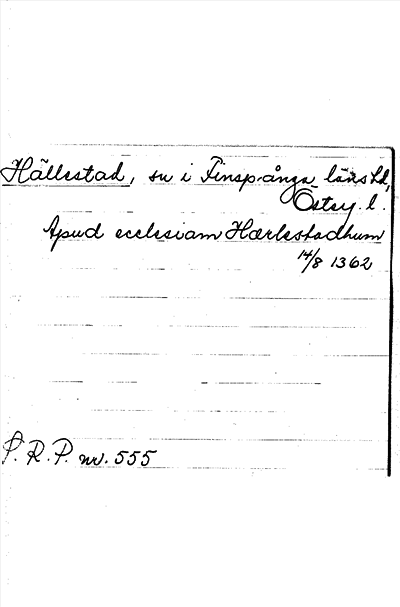 Hällestad, sn i Finspånga läns hd,
Östg. l.
Apud ecclesiam Hærlestadhum
14/8 1362
S. R. P. nr. 555